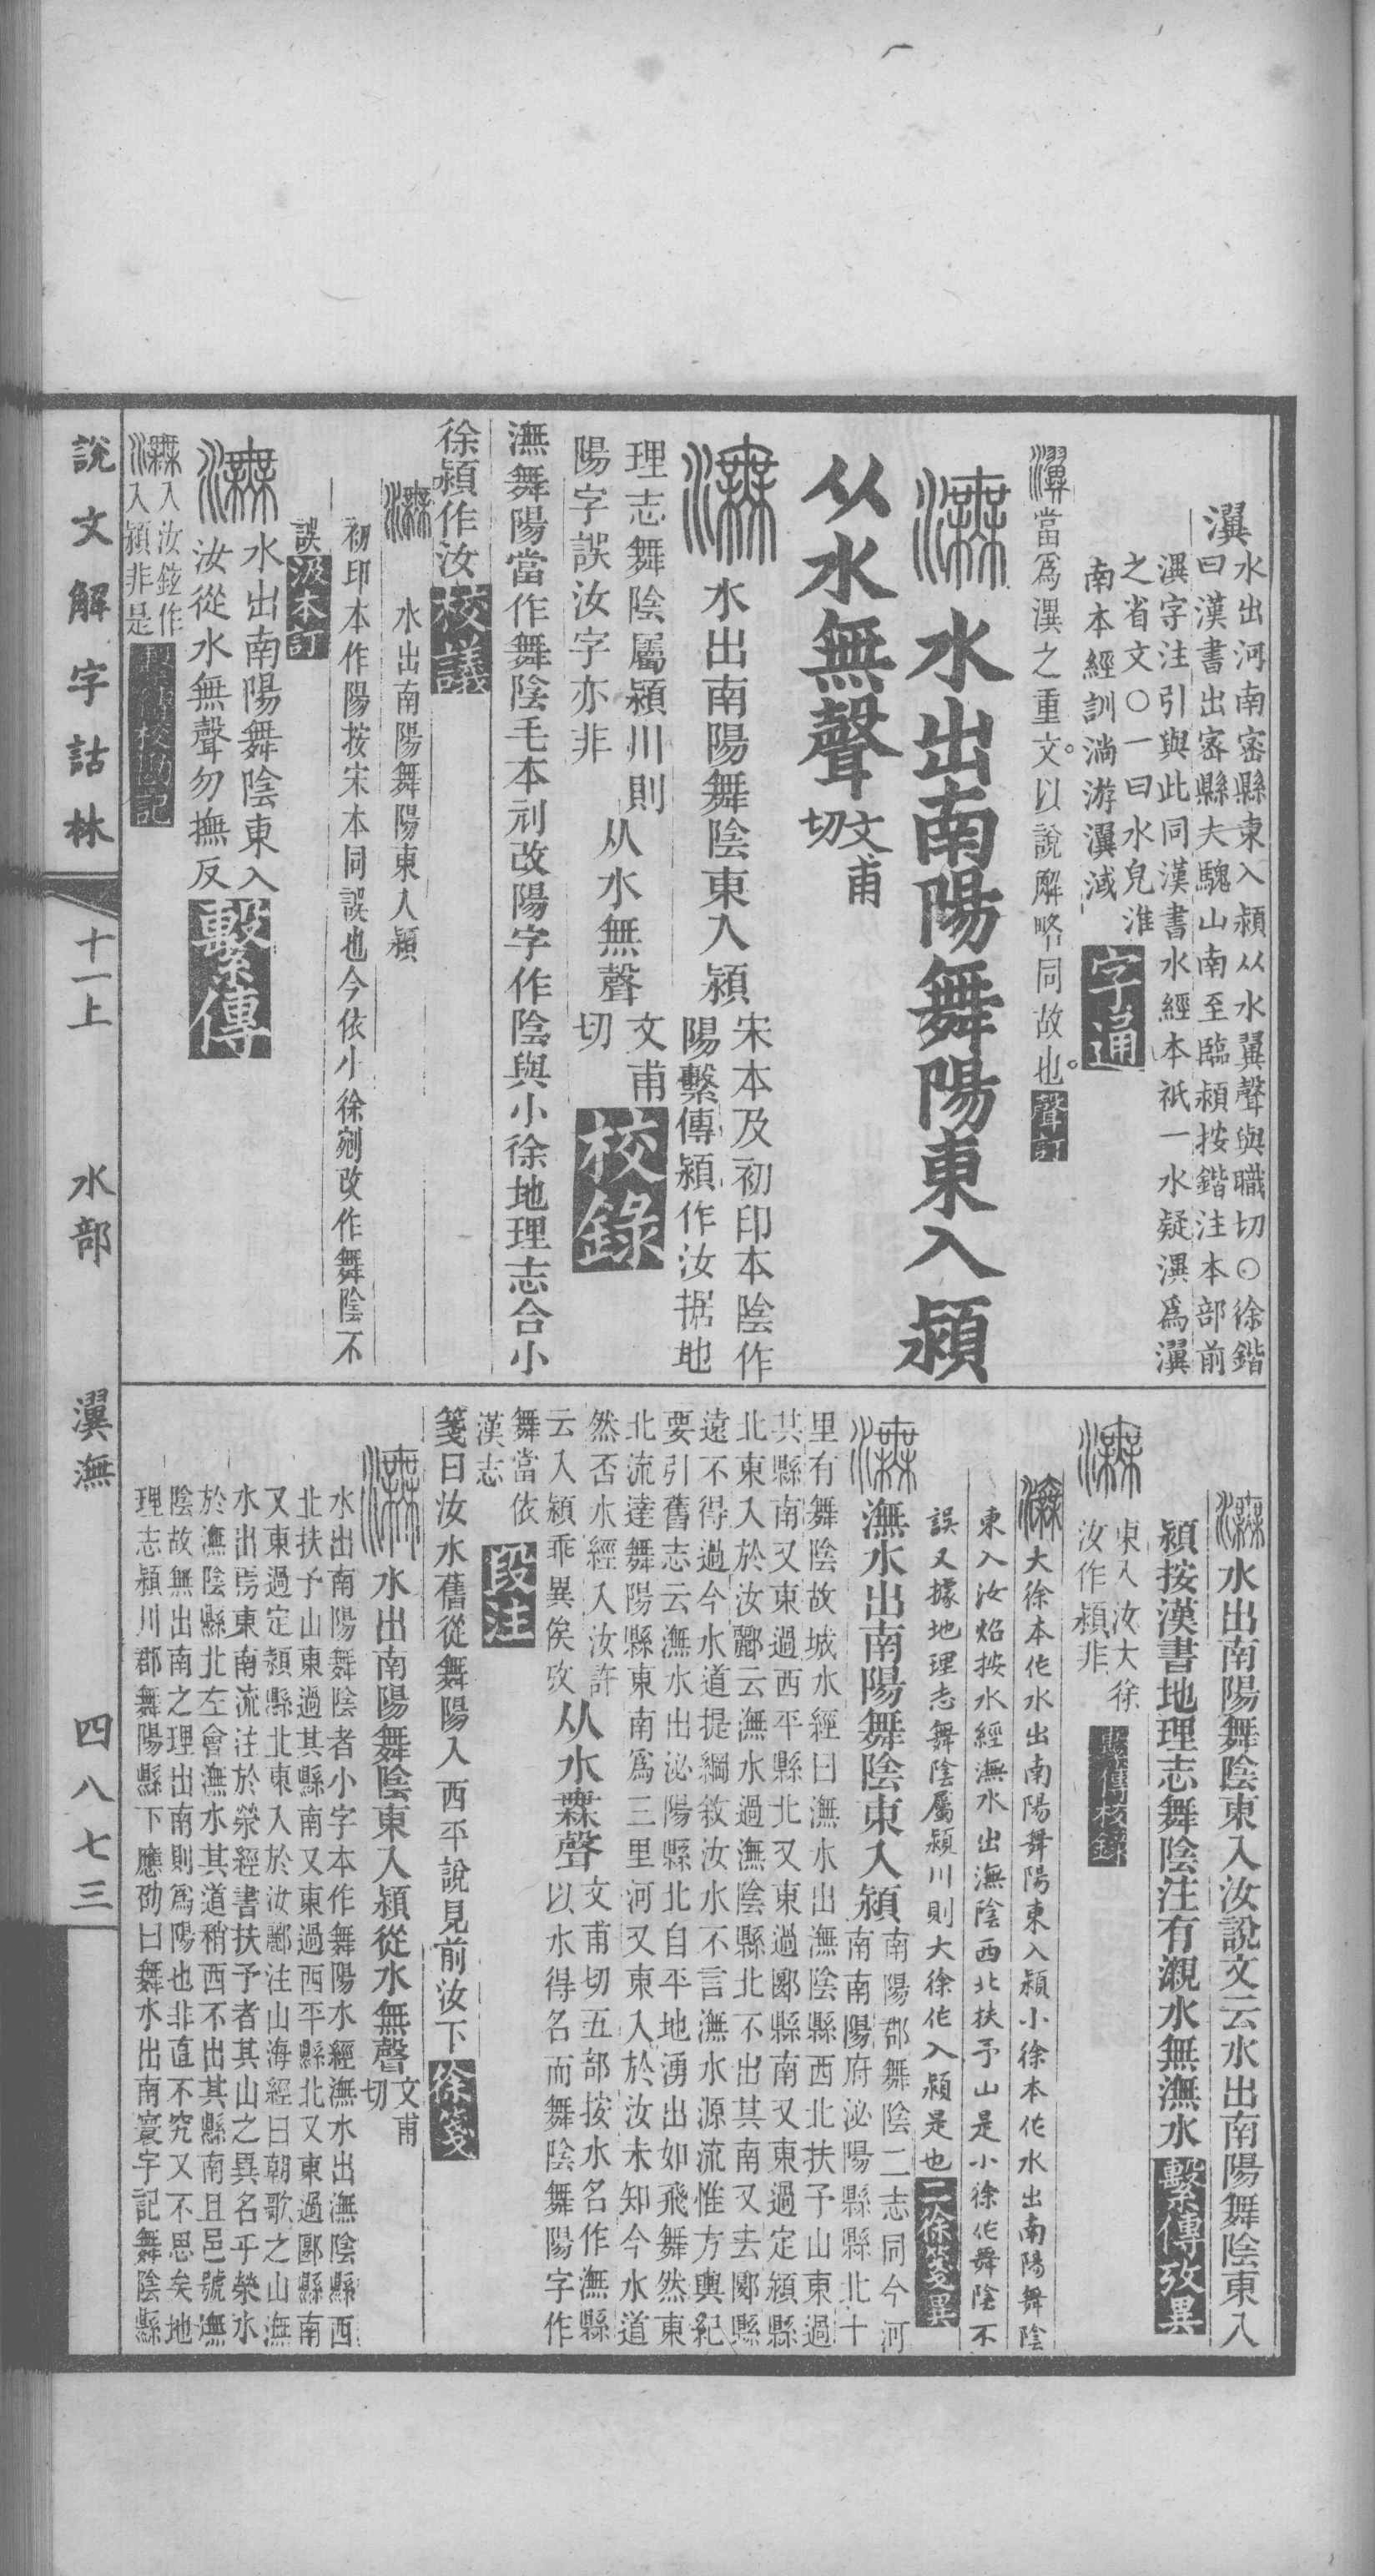 瀷
水出河南密縣東入潁从水翼聲與職切○徐鍇
曰漢書出密縣大騩山南至臨潁按鍇注本部前
潩字注引與此同漢書水經本祇一水疑潩爲瀷
之省文○一曰水皃淮
南本經訓淌游瀷淢
字通
當爲潩之重文。以說解略同故也。聲訂
水出南陽舞陽東入潁
从水無聲
文甫
切
水出南陽舞陰東入潁
宋本及初印本陰作
陽繫傳潁作汝据地
理志舞陰屬潁川則
陽字誤汝字亦非
从水無聲
文甫
切
校錄
潕舞陽當作舞陰毛本刓改陽字作陰與小徐地理志合小
徐潁作汝校議
水出南陽舞陽東入潁
初印本作陽按宋本同誤也今依小徐剜改作舞陰不
誤汲本訂
水出南陽舞陰東入
汝從水無聲勿撫反
繫傳
入汝鉉作
入潁非是
繫傳校勘記
水出南陽舞陰東入汝說文云水出南陽舞陰東入
潁按漢書地理志舞陰注有瀙水無潕水繫傳攷異
東入汝大徐
汝作潁非
繫傳校錄
大徐本作水出南陽舞陽東入潁小徐本作水出南陽舞陰
東入汝炤按水經潕水出潕陰西北扶予山是小徐作舞陰不
誤又據地理志舞陰屬潁川則大徐作入潁是也二徐箋異
潕水出南陽舞陰東入潁
南陽郡舞陰二志同今河
南南陽府泌陽縣縣北十
里有舞陰故城水經曰潕水出潕陰縣西北扶予山東過
其縣南又東過西平縣北又東過郾縣南又東過定潁縣
北東入於汝酈云潕水過潕陰縣北不出其南又去郾縣
遠不得過今水道提綱敘汝水不言潕水源流惟方輿紀
要引舊志云潕水出泌陽縣北自平地湧出如飛舞然東
北流達舞陽縣東南爲三里河又東入於汝未知今水道
然否水經入汝許
云入潁乖異俟攷
从水𣞤聲
文甫切五部按水名作潕縣
以水得名而舞陰舞陽字作
舞當依
漢志
段注
箋曰汝水舊從舞陽入西平說見前汝下徐箋
水出南陽舞陰東入潁從水無聲
文甫
切
水出南陽舞陰者小字本作舞陽水經潕水出潕陰縣西
北扶予山東過其縣南又東過西平縣北又東過郾縣南
又東過定潁縣北東入於汝酈注山海經曰朝歌之山潕
水出焉東南流注於滎經書扶予者其山之異名乎滎水
於潕陰縣北左會潕水其道稍西不出其縣南且邑號潕
陰故無出南之理出南則爲陽也非直不究又不思矣地
理志潁川郡舞陽縣下應劭曰舞水出南寰宇記舞陰縣
說文解字詁林
十一上
水部
瀷潕
四八七三